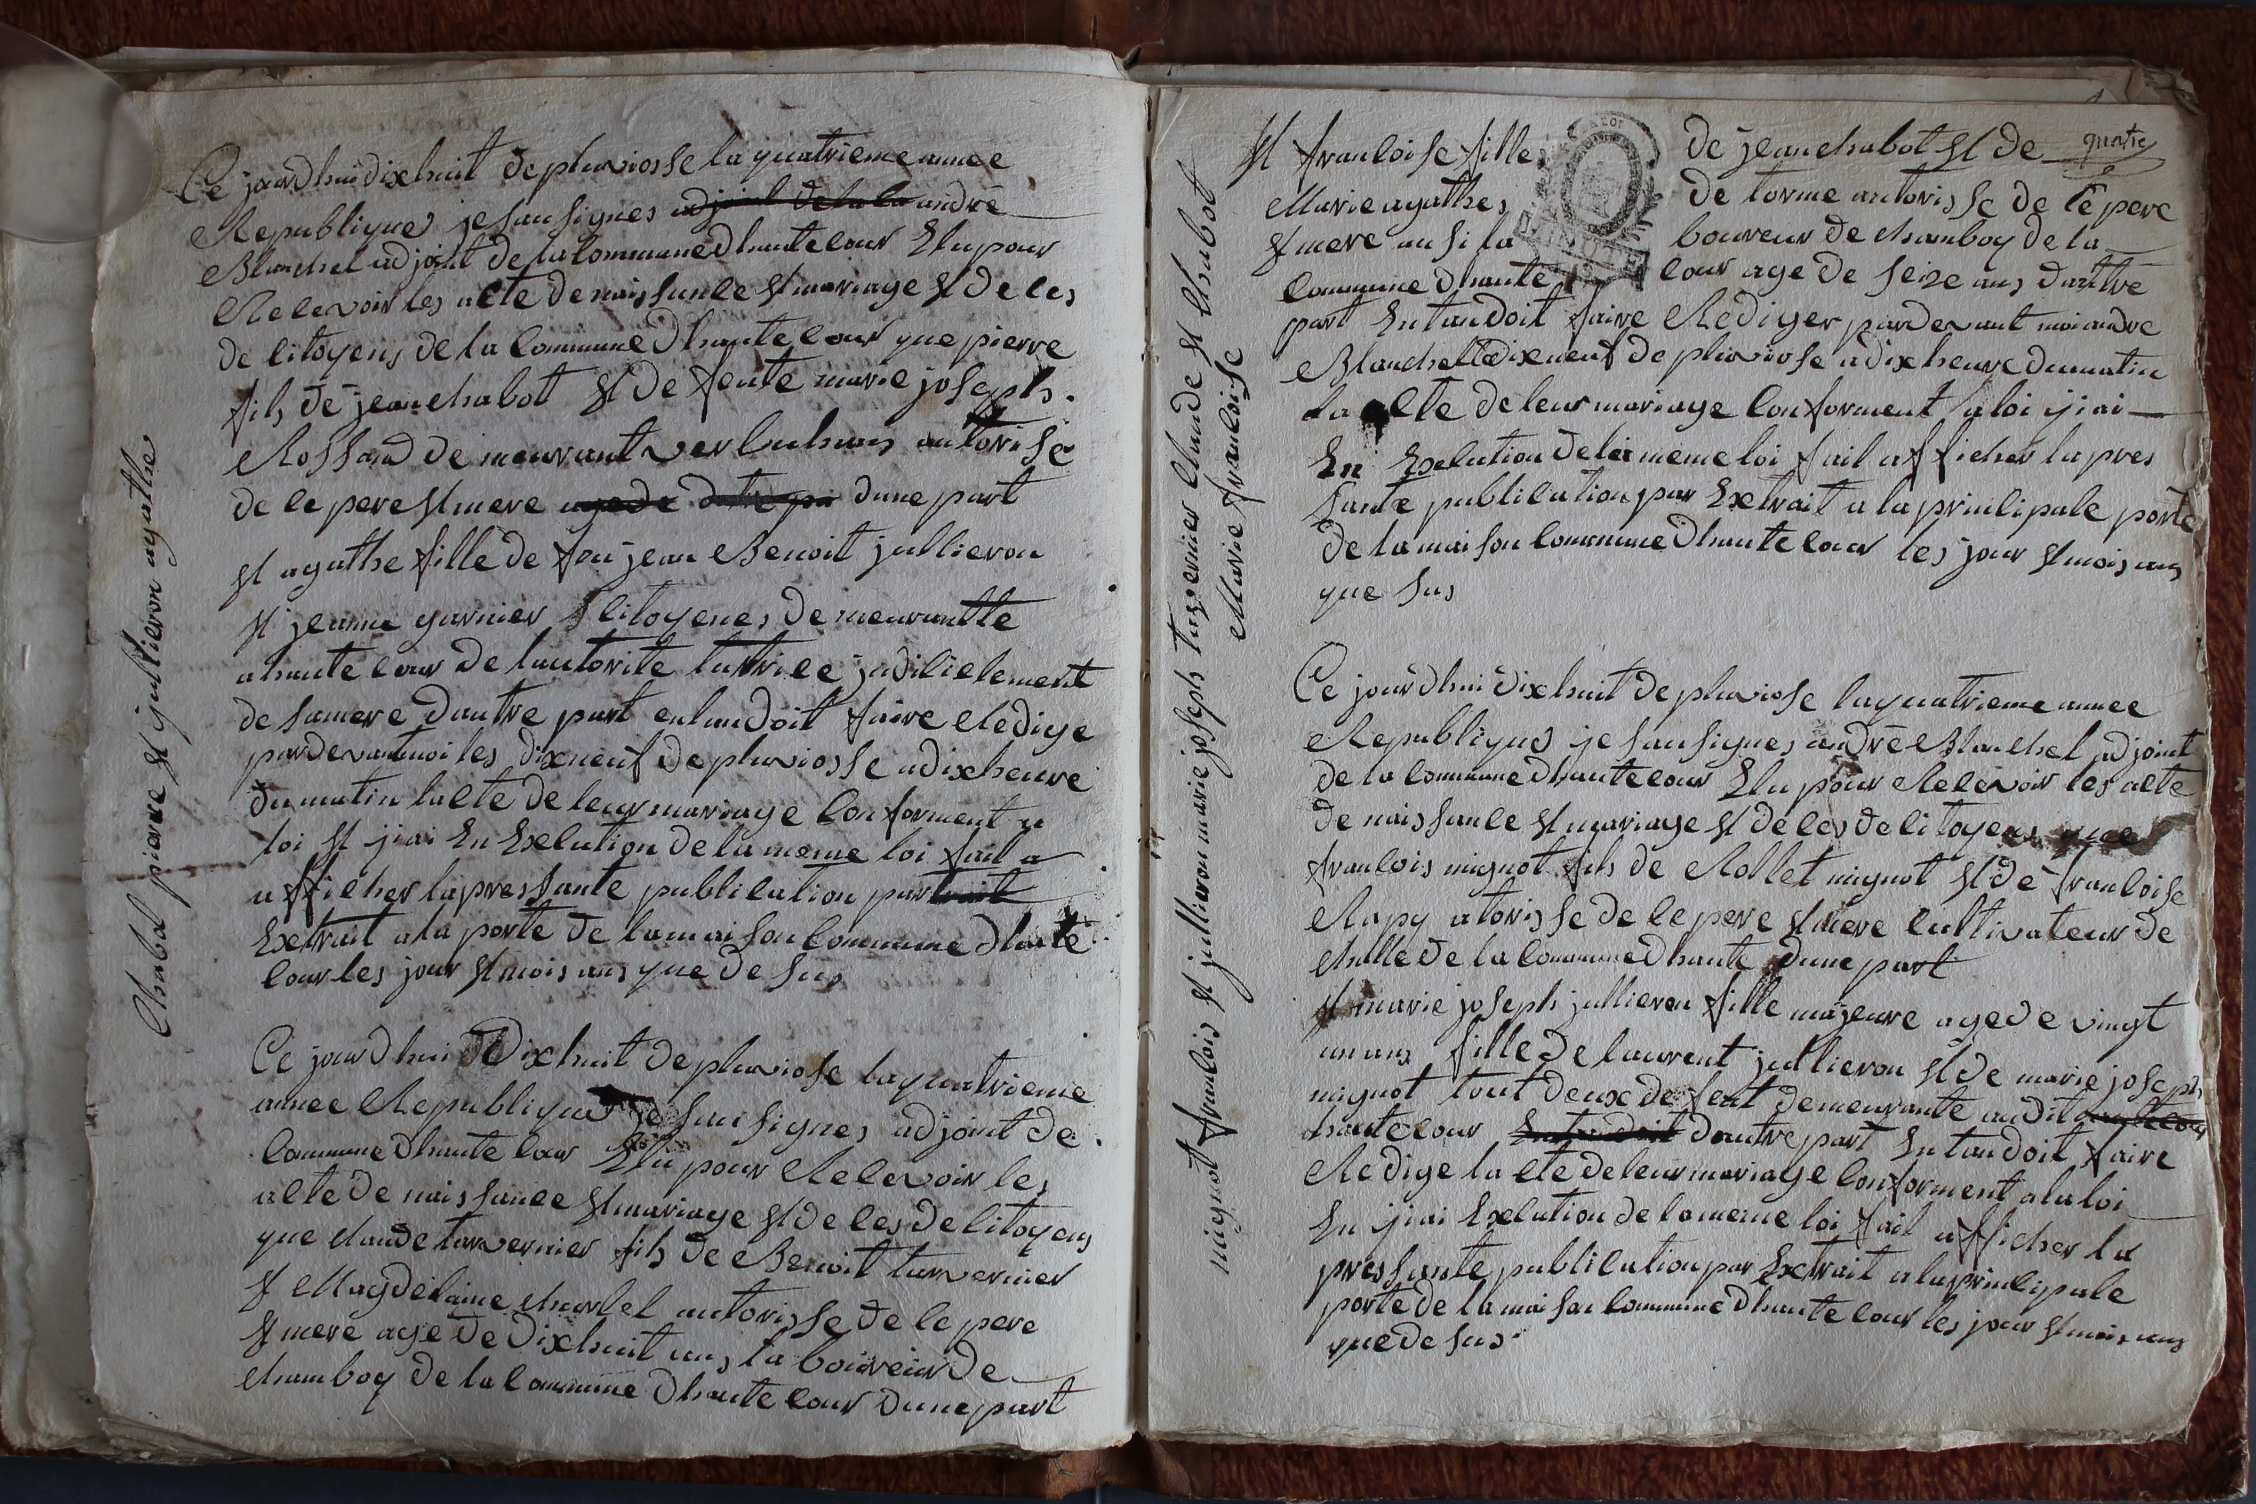 Chabot pierre et jullieron agathe
Ce jourdhui dixhuit de pluviosse la quatrieme annee
Republique je sousignes adjoint de la co andré
Blanchet adjoint de la commune dhautecour Elu pour
Recevoir les acte de naissance et mariage et de ces
de citoyens de la commune dhautecour que pierre
fils de jean chabot et de feute marie joseph
Rossand de meurant autorisé
de ce pere et mere agede dune part
et agathe fille de feu jean Benoit jullieron
et jeanne garnier citoyenes de meurantte
a haute cour de lautorite tutrice judicielement
de sa mere dautre part entandoit faire Redige
pardevant moi les dixneuf de pluviosse a dix heure
du matin lacte de leur mariage conforment a
loi et jiai En Execution de la meme loi fait a
afficher la pressante publication par trait
Extrait a la porte de la maison commune dhaute
cour les jour et mois ans que de sus
Ce jourdhui Dixhuit de pluviose la quatrieme
annee Republique je sousignes adjoint de
commune dhaute cour Elu pour Recevoir les
acte de naissance et mariage et de ces de citoyens
que claude tavernier fils de Benoit tavernier
et Magdelaine charlet autorisse de ce pere
et mere age de dixhuit ans laboureur de
chamboy de la commune dhaute cour dune part
mignot francois et jullieron marie joseph tavernier claude et chabot
Marie francoise
et francoise fille de jean chabot et de
quatre
Marie agathe de lorme autorisse de ce pere
et mere ausi laboureur de chamboy de la
commune dhaute cour age de seize ans dautre
part Entandoit faire Rediger pardevant moi andre
Blanchet le dixneuf de pluviose a dix heure du matin
la acte de leur mariage conforment a loi jiai
En Execution de la meme loi fait afficher la pres
sante publication par Extrait a la principale porte
de la maison commune dhaute cour les jour et mois ans
que sus
Ce jourdhui Dixhuit de pluviose la quatrieme annee
Republique je sousignes andré Blanchet adjoint
de la commune dhautecour Elu pour Recevoir les acte
de naissance et mariage et de ces de citoyens que
francois mignot fils de Collet mignot et de francoise
Rapy atorisse de ce pere et mere cultivateur de
chatte de la commune dhaute dune part
et marie joseph jullieron fille majeure agede vingt
un ans fille de laurent jullieron et de marie joseph
mignot tout deux de feut demeurante audit
haute cour Entandoit dautre part Entandoit faire
Redige lacte de leur mariage conforment a la loi
En jiai Execution de la meme loi fait afficher la
pressante publication par Extrait a la principale
porte de la maison commune dhaute cour les jour et mois ans
que de sus